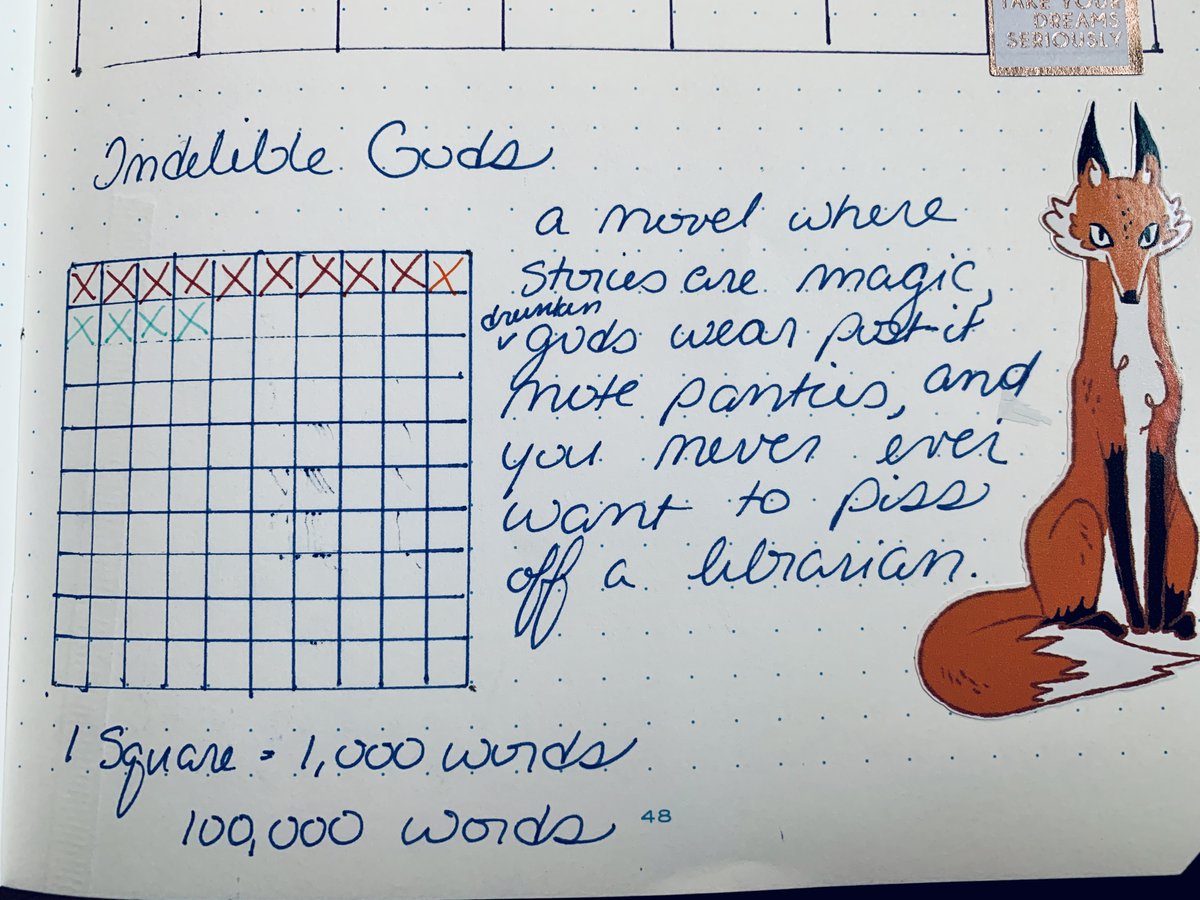 TAKE YOUR
DREAMS
SERIOUSLY
Indelible Gods
a novel where
stories are magic,
drunken
gods wear post-it
note panties, and
you never ever
want to piss
off a librarian.
1 Square = 1,000 words
100,000 words
48